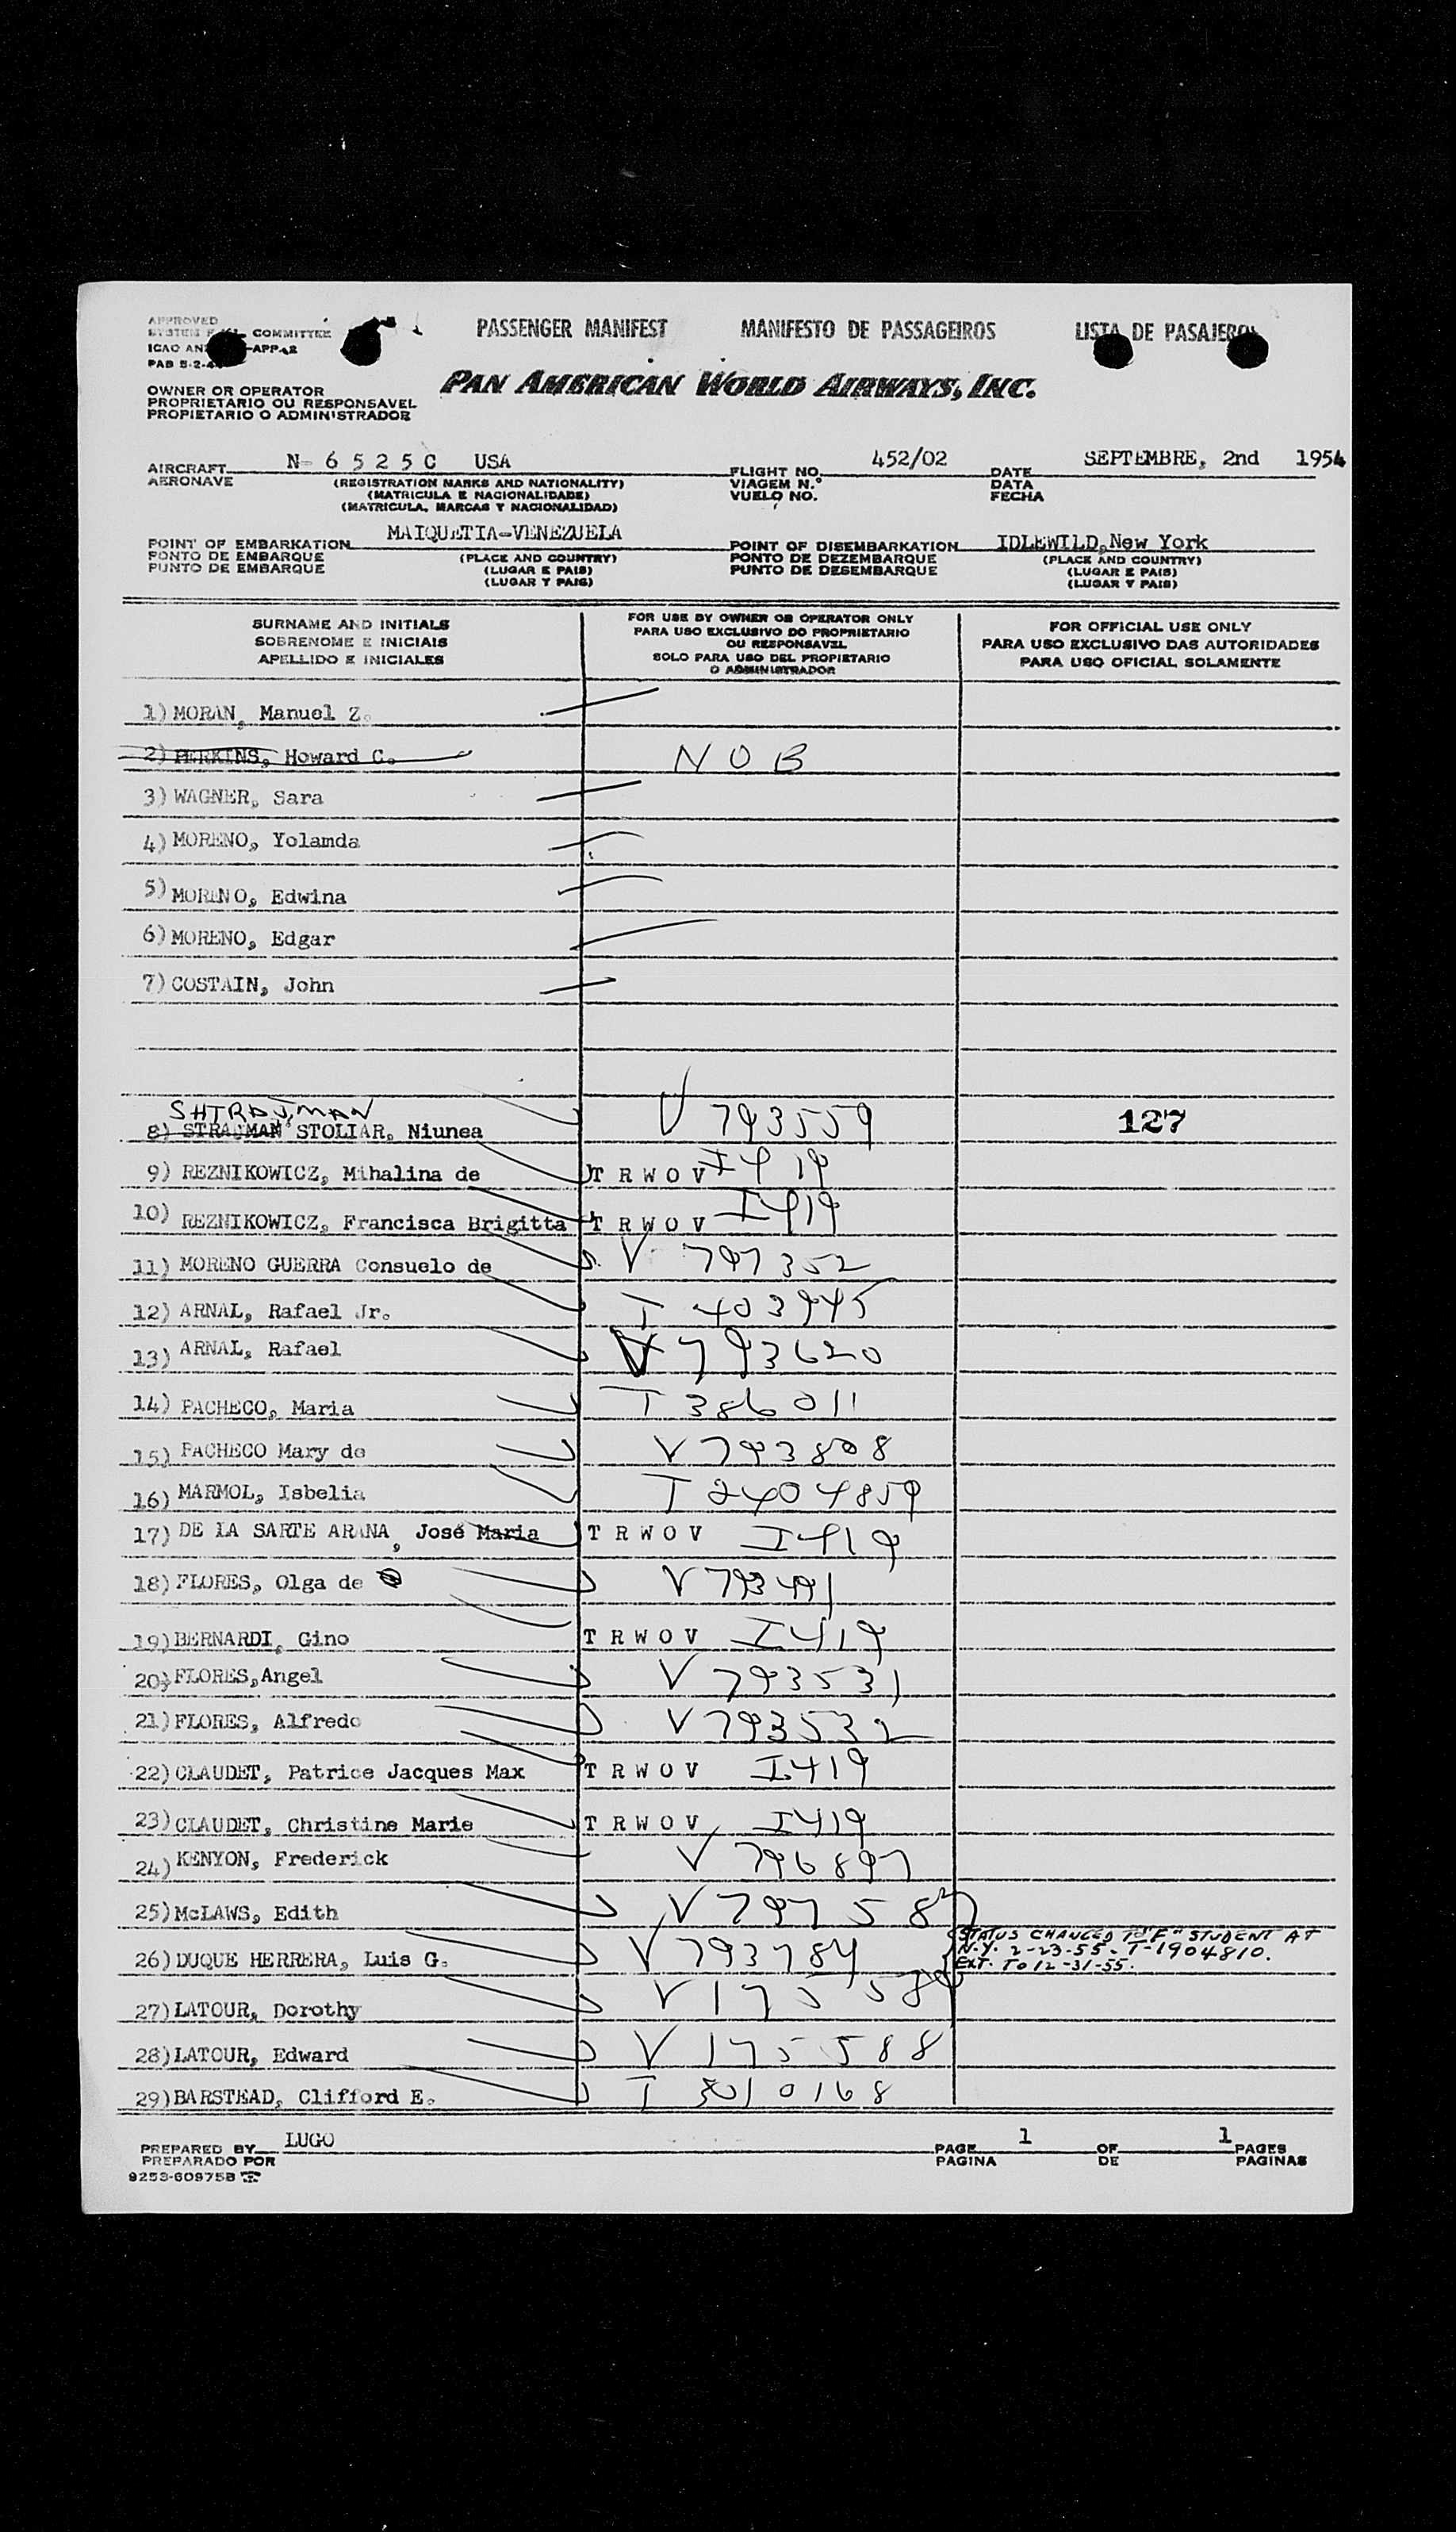 APPROVED
COMMITTEE
PASSENGER MANIFEST MANIFESTO DE PASSAGEIROS LISTA DE PASAJEROS
PAN AMERICAN WORLD AIRWAYS, INC.
OWNER OR OPERATOR
PROPRIETARIO OU RESPONSAVEL
PROPIETARIO O ADMINISTRADOR
AIRCRAFT N- 6 5 2 5 C USA FLIGHT NO. 452/02 DATE SEPTEMBRE, 2nd 1954
AERONAVE (REGISTRATION MARKS AND NATIONALITY) VIAGEM N.º DATA
(MATRICULA E NACIONALIDADE) VUELO NO. FECHA
(MATRICULA, MARCAS Y NACIONALIDAD)
POINT OF EMBARKATION MAIQUETIA-VENEZUELA POINT OF DISEMBARKATION IDLEWILD, New York
PONTO DE EMBARQUE (PLACE AND COUNTRY) PONTO DE DEZEMBARQUE (PLACE AND COUNTRY)
PUNTO DE EMBARQUE (LUGAR E PAIS) PUNTO DE DESEMBARQUE (LUGAR E PAIS)
(LUGAR Y PAIS) (LUGAR Y PAIS)
SURNAME AND INITIALS
SOBRENOME E INICIAIS
APELLIDO E INICIALES
FOR USE BY OWNER OR OPERATOR ONLY
PARA USO EXCLUSIVO DO PROPRIETARIO
OU RESPONSAVEL
SOLO PARA USO DEL PROPIETARIO
O ADMINISTRADOR
FOR OFFICIAL USE ONLY
PARA USO EXCLUSIVO DAS AUTORIDADES
PARA USO OFICIAL SOLAMENTE
1) MORAN, Manuel Z.
2) PERKINS, Howard C. N O B
3) WAGNER, Sara
4) MORENO, Yolamda
5) MORENO, Edwina
6) MORENO, Edgar
7) COSTAIN, John
SHTRAJMAN
8) STRACMAN STOLIAR, Niunea V 793559 127
9) REZNIKOWICZ, Mihalina de T R W O V I 419
10) REZNIKOWICZ, Francisca Brigitta T R W O V I 419
11) MORENO GUERRA Consuelo de V 797352
12) ARNAL, Rafael Jr. T 403945
13) ARNAL, Rafael V 793620
14) PACHECO, Maria T 386011
15) PACHECO Mary de V 793808
16) MARMOL, Isbelia T 2404859
17) DE LA SARTE ARANA, José Maria T R W O V I 419
18) FLORES, Olga de V 793491
19) BERNARDI, Gino T R W O V I 419
20) FLORES, Angel V 793531
21) FLORES, Alfredo V 793532
22) CLAUDET, Patrice Jacques Max T R W O V I 419
23) CLAUDET, Christine Marie T R W O V I 419
24) KENYON, Frederick V 796897
25) McLAWS, Edith V 797587
STATUS CHANGED TO "F" STUDENT AT
26) DUQUE HERRERA, Luis G. V 793784 N.Y. 2-23-55. T-1904810.
EXT. TO 12-31-55.
27) LATOUR, Dorothy V
28) LATOUR, Edward V 175588
29) BARSTEAD, Clifford E. T 3010168
PREPARED BY LUGO PAGE 1 OF 1 PAGES
PREPARADO POR PAGINA DE PAGINAS
9253-60975B